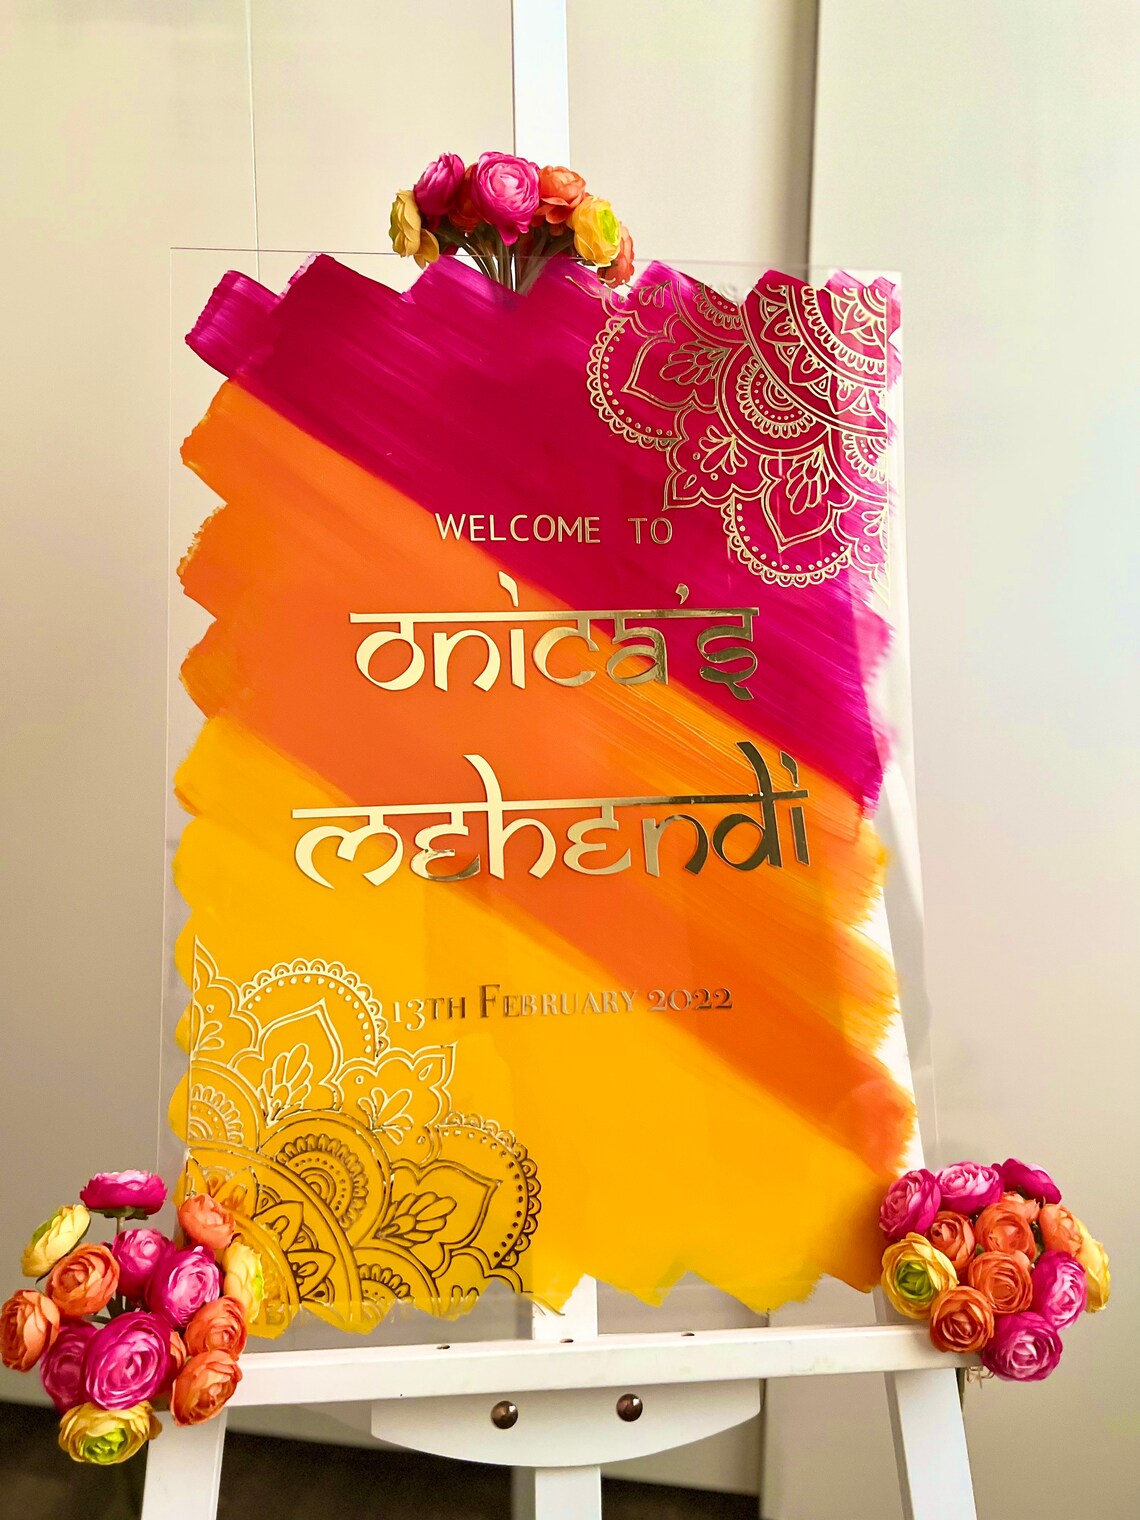 WELCOME TO
Onica's
Mehendi
13th February 2022